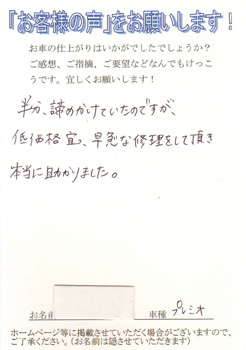 「お客様の声」をお願いします！
お車の仕上がりはいかがでしたでしょうか？
ご感想、ご指摘、ご要望などなんでもけっこ
うです。宜しくお願いします！
半分、諦めかけていたのですが、
低価格宜、早急な修理をして頂き
本当に助かりました。
お名前 車種 プレミオ
ホームページ等に掲載させていただく場合がございますので、
ご了承ください。（お名前は隠させていただきます）